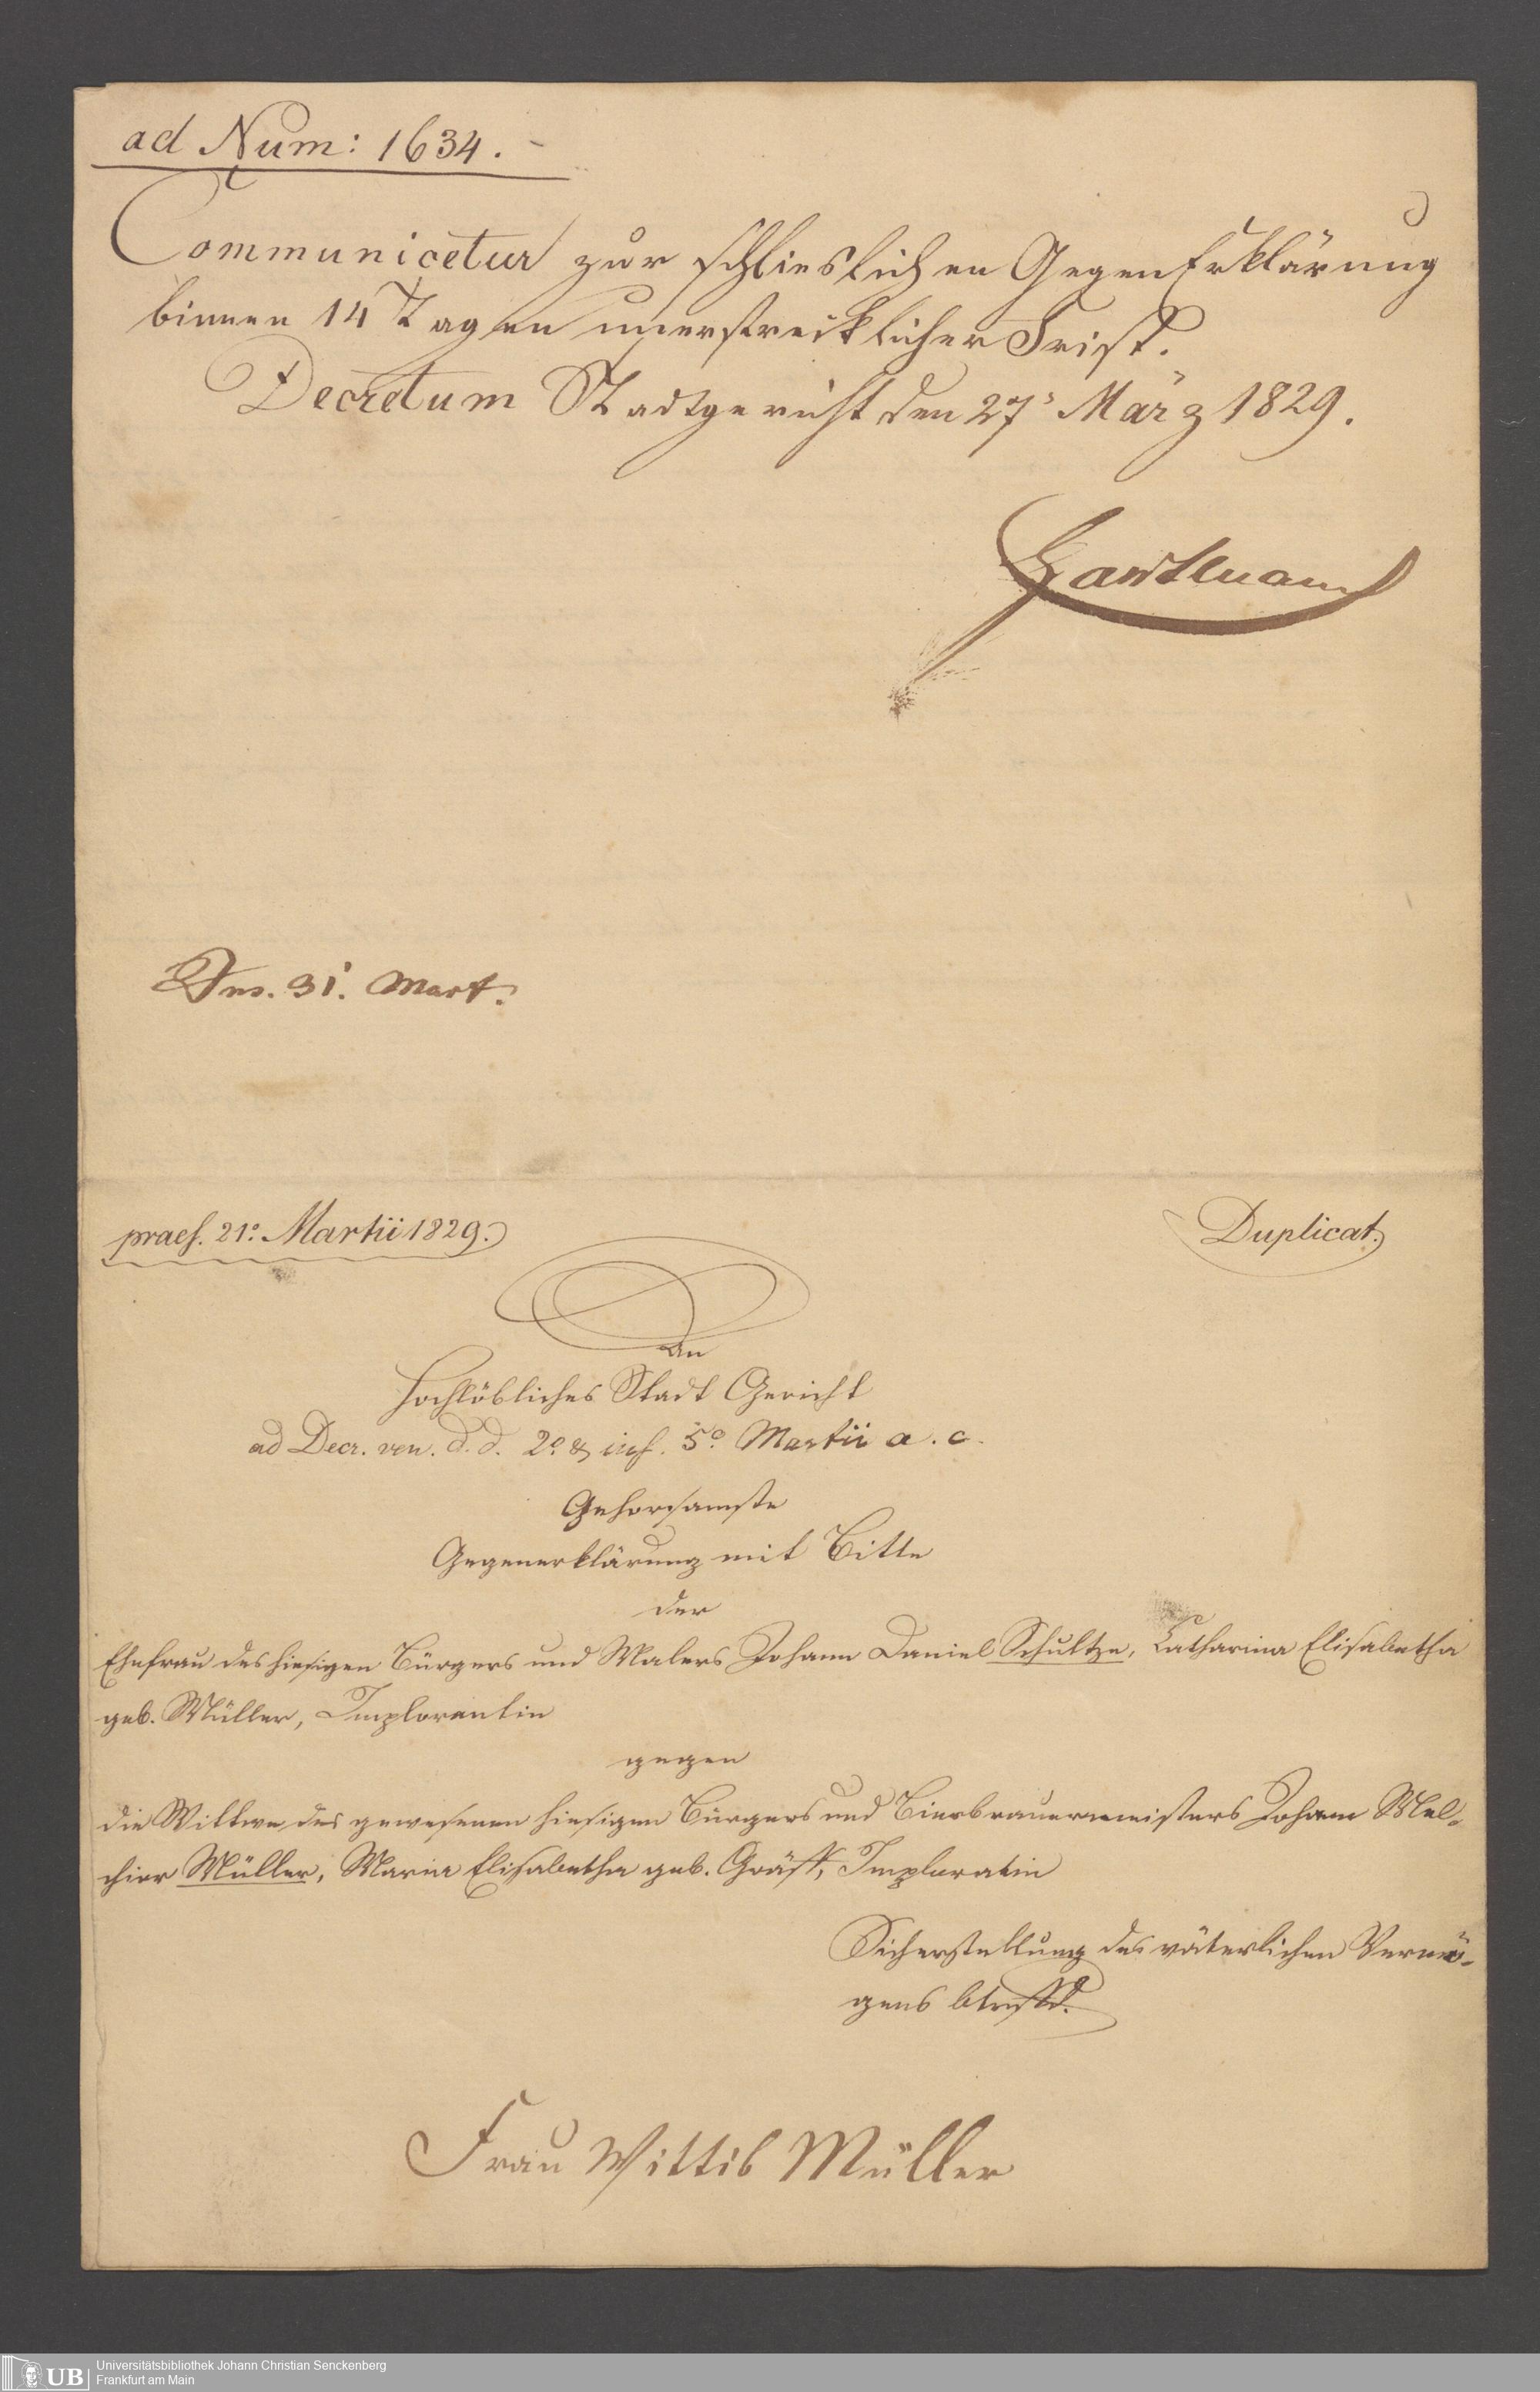 ad Num: 1634.
Communicetur zur schlieslichen GegenErklärung
binnen 14 Tagen unerstrecklicher Frist.
Decretum Stadtgericht den 27' März 1829.
Ins. 31'. Mart.
praes. 21º. Martii 1829.
Duplicat.
An
Hochlöbliches Stadt Gericht
ad Decr. ven. d. d. 2º & ins. 5º Martii a. c.
Gehorsamste
Gegenerklärung mit Bitte
der
Ehefrau des hiesigen Bürgers und Malers Johann Daniel Schultze, Catharina Elisabetha
geb. Müller, Implorantin
gegen
die Wittwe des gewesenen hiesigen Bürgers und Bierbrauermeisters Johann Mel-
chior Müller, Maria Elisabetha geb. Gräff, Imploratin
Sicherstellung des väterlichen Vermö-
gens betreffd.
Frau Wittib Müller
UB
Universitätsbibliothek Johann Christian Senckenberg
Frankfurt am Main